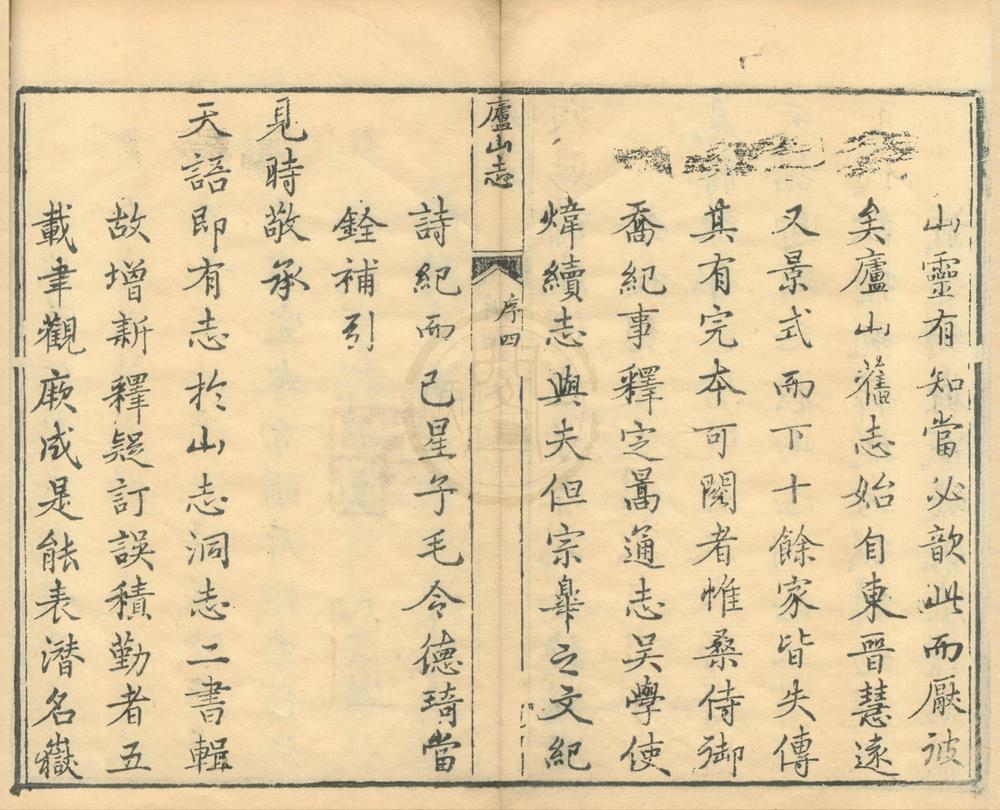 山靈有知當必歆此而厭彼
矣廬山舊志始自東晉慧遠
又景式而下十餘家皆失傳
其有完本可閱者惟桑侍御
喬紀事釋定暠通志吴學使
煒續志與夫但宗臯之文紀
廬山志
序四
詩紀而已星子毛令德琦當
銓補引
見時敬承
天語即有志於山志洞志二書輯
故增新釋疑訂誤積勤者五
載聿觀厥成是能表潛名嶽